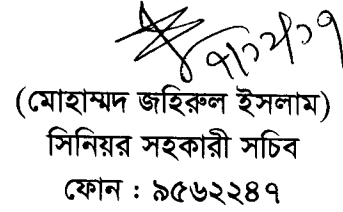 (মোহাম্মদ জহিরুল ইসলাম)
সিনিয়র সহকারী সচিব
ফোন : ৯৫৬২২৪৭